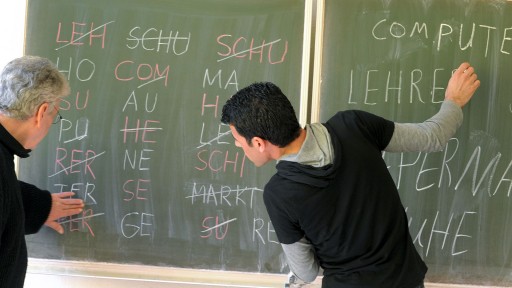 LEH SCHU SCHU
HO COM MA
SU AU H
PU HE LE
RER NE SCHI
TER SE MARKT
ER GE SU RE
COMPUTE
LEHRE
PERMA
UHE